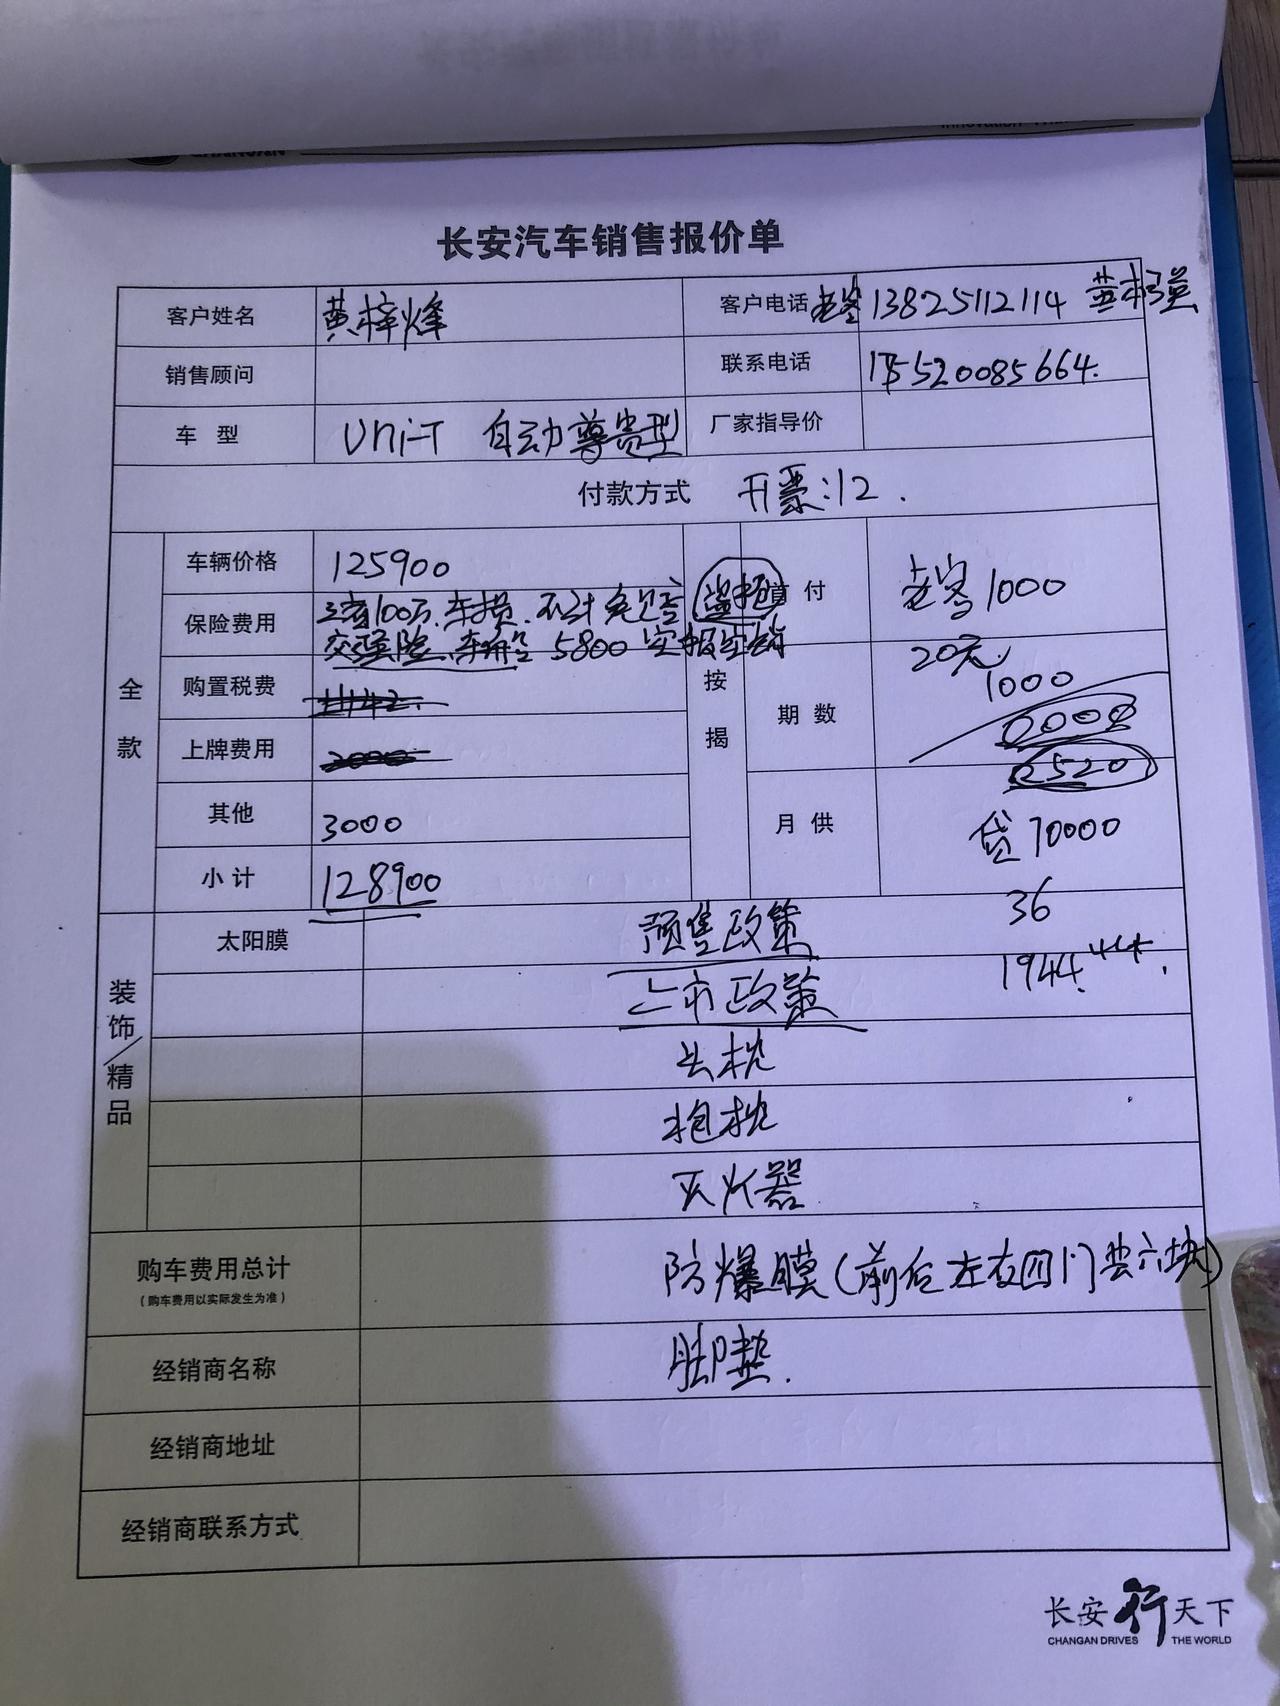 长安汽车销售报价单
客户姓名 黄梓烽 客户电话 老客 13825112114
销售顾问 联系电话 175520085664.
车 型 uni-T 自动尊贵型 厂家指导价
付款方式 开票:12.
全款
车辆价格 125900
保险费用 三者100万.车损.不计免 盗抢
交强险.车船 5800 实报实销
购置税费
上牌费用
其他 3000
小计 128900
按揭
首 付 老客1000
20元
期 数 1000
2520
月 供 贷70000
36
1944.44.
装饰/精品
太阳膜 预售政策
上市政策
头枕
抱枕
灭火器
购车费用总计 防爆膜(前后左右四门共六块)
(购车费用以实际发生为准)
经销商名称 脚垫.
经销商地址
经销商联系方式
长安行天下
CHANGAN DRIVES THE WORLD